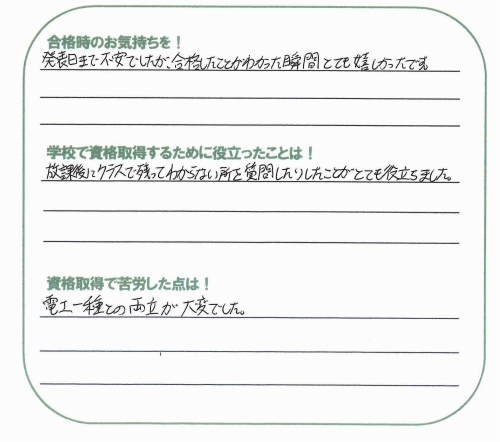 合格時のお気持ちを！
発表日まで不安でしたが、合格したことがわかった瞬間とても嬉しかったです
学校で資格取得するために役立ったことは！
放課後にクラスで残ってわからない所を質問したりしたことがとても役立ちました。
資格取得で苦労した点は！
電工一種との両立が大変でした。